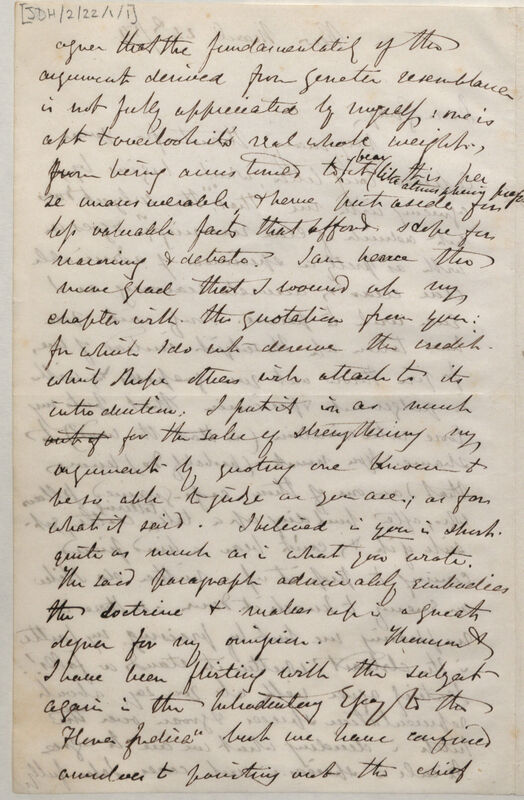 [JDH/2/22/1/1]
agree that the fundamentality of the
argument derived from genetic resemblance
is not fully appreciated by myself: one is
apt to overlook its real whole weight,
from being accustomed to it
bear like this per
se unanswerable, & hence put aside for
less valuable facts that afford scope for
reasoning & debate. I am hence the
more glad that I wound up my
chapter with the quotation from you:
for which I do not deserve the credit
which I hope others will attach to its
introduction. I put it in as much
out of for the sake of strengthening my
argument by quoting one known to
be so able to judge as you are; as for
what it said. I believed in you in short
quite as much as in what you wrote.
The said paragraph admirably embodies
the doctrine & makes up in a great
degree for my omission. Thomson &
I have been flirting with the subject
again in the Introductory Essay to the
"Flora Indica" but we have confined
ourselves to pointing out the chief